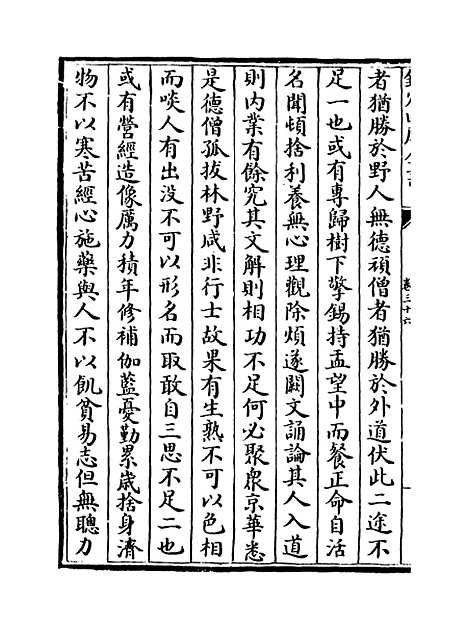 卷三十六
者猶勝於野人無德頑僧者猶勝於外道伏此二途不
足一也或有專歸樹下擎錫持盂望中而餐正命自活
名聞頓捨利養無心理觀除煩遂闕文誦論其人入道
則内業有餘究其文解則相功不足何必聚衆京華悉
是德僧孤拔林野咸非行士故果有生熟不可以色相
而啖人有出没不可以形名而取敢自三思不足二也
或有營經造像厲力積年修補伽藍憂勤累歲捨身濟
物不以寒苦經心施藥與人不以飢貧易志但無聰力